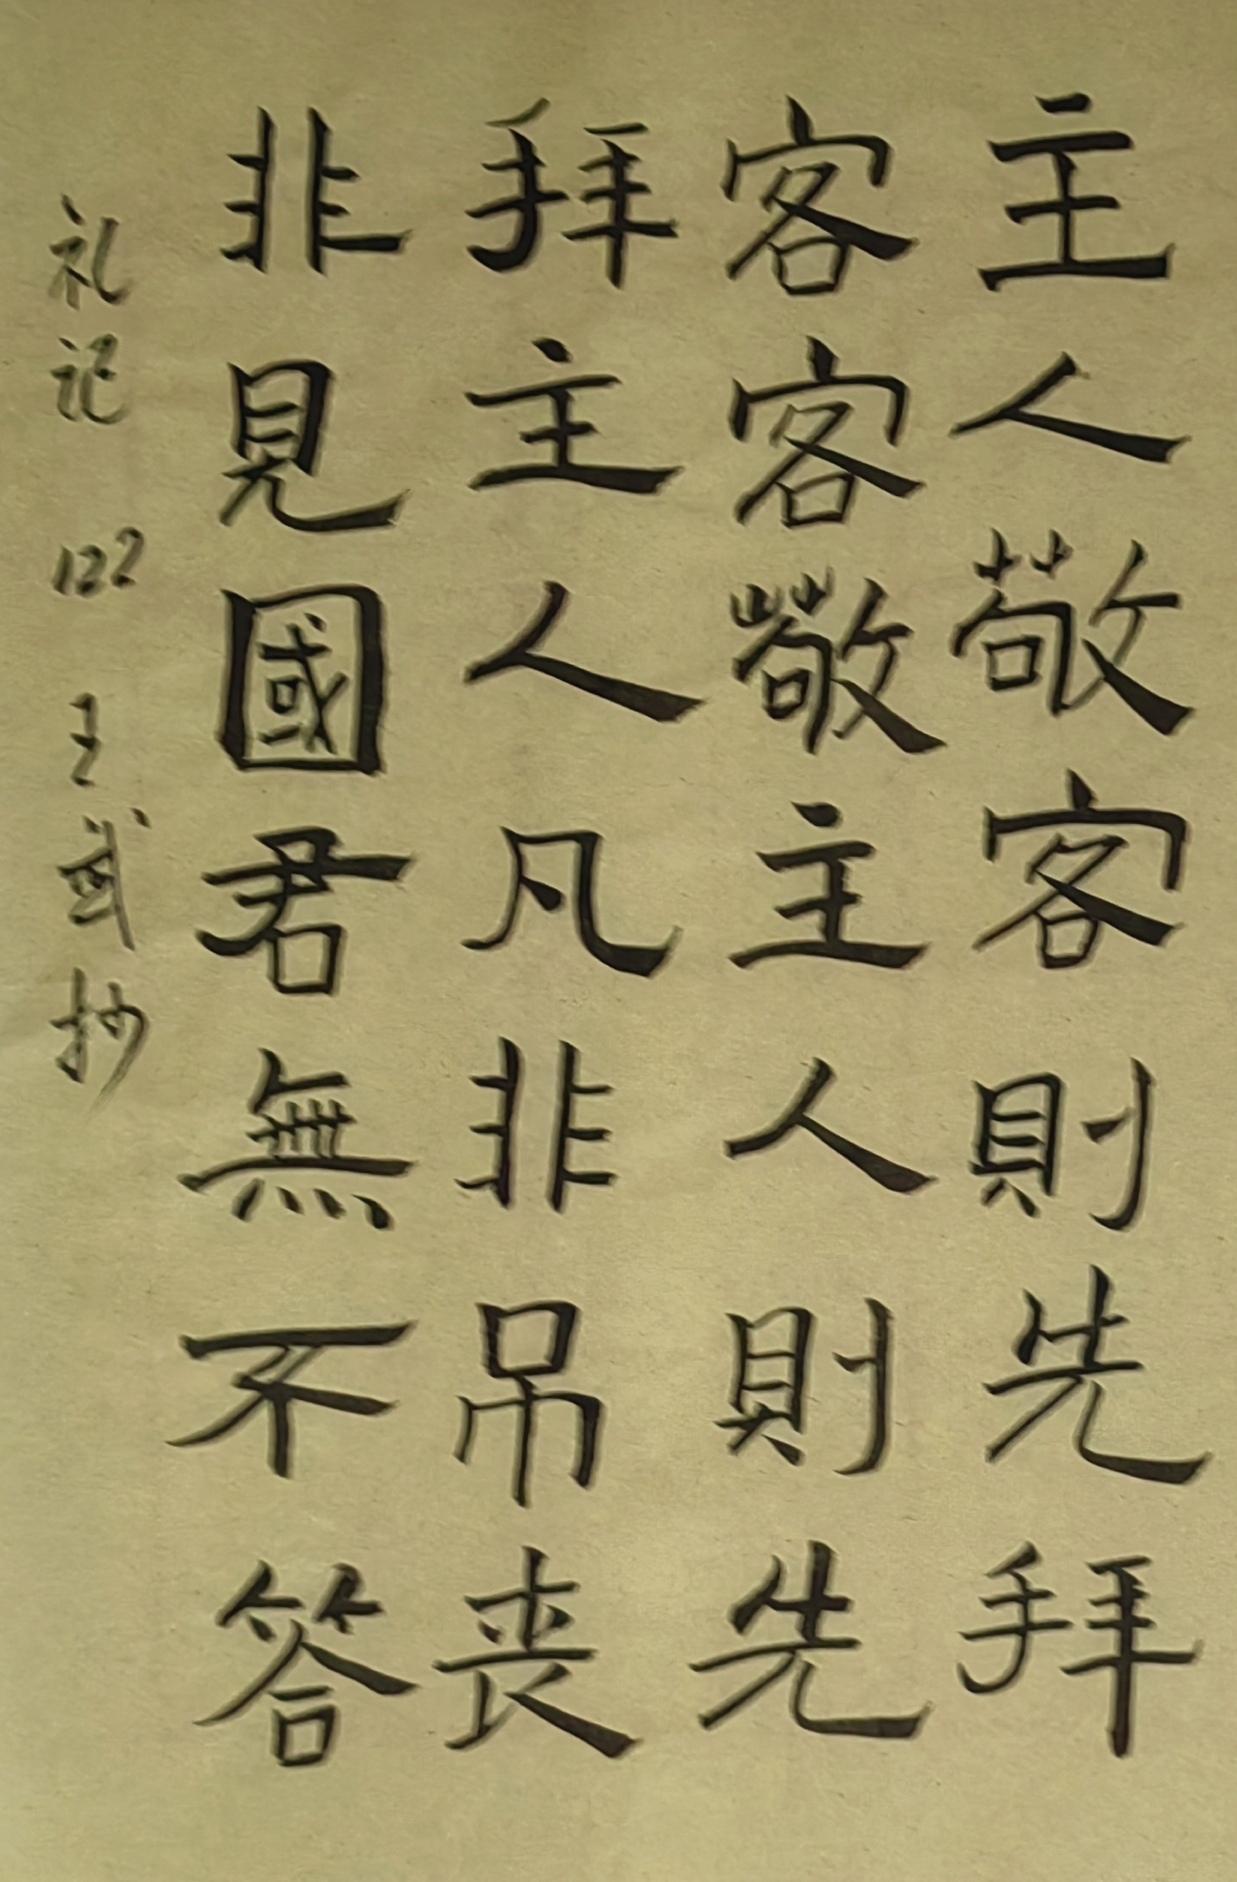 主人敬客則先拜
客客敬主人則先
拜主人凡非吊喪
非見國君無不答
礼记 122 王武抄